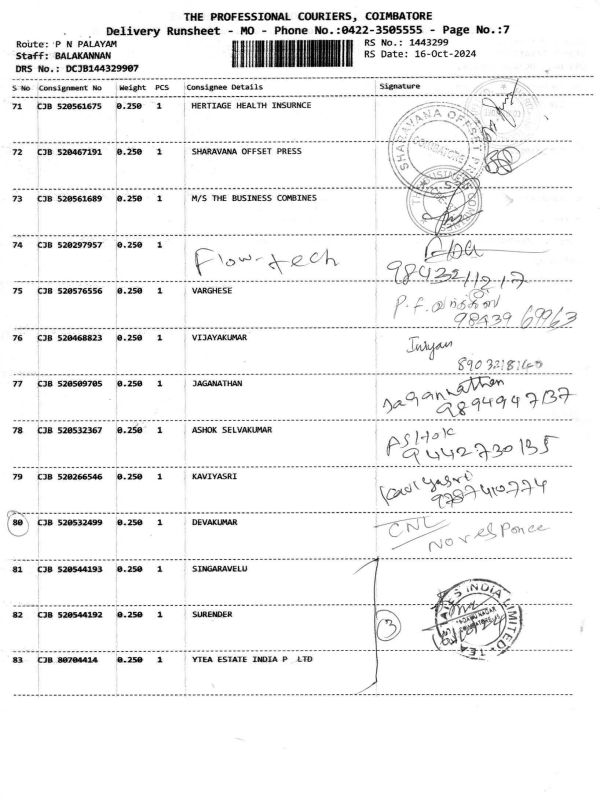 THE PROFESSIONAL COURIERS, COIMBATORE
Delivery Runsheet - MO - Phone No.:0422-3505555 - Page No.:7
Route: P N PALAYAM
RS No.: 1443299
Staff: BALAKANNAN
RS Date: 16-Oct-2024
DRS No.: DCJB144329907
S No Consignment No Weight PCS Consignee Details Signature
71 CJB 520561675 0.250 1 HERTIAGE HEALTH INSURNCE
72 CJB 520467191 0.250 1 SHARAVANA OFFSET PRESS
SHARAVANA OFFSET
COIMBATORE
73 CJB 520561689 0.250 1 M/S THE BUSINESS COMBINES
74 CJB 520297957 0.250 1 Flow-tech
9843211217
75 CJB 520576556 0.250 1 VARGHESE P.F.
98439 69963
76 CJB 520468823 0.250 1 VIJAYAKUMAR
77 CJB 520509705 0.250 1 JAGANATHAN Jagannathan
9894947137
78 CJB 520532367 0.250 1 ASHOK SELVAKUMAR ASHOK
9442730135
79 CJB 520266546 0.250 1 KAVIYASRI Kaviyasri
9787410774
80 CJB 520532499 0.250 1 DEVAKUMAR CNL
No responce
81 CJB 520544193 0.250 1 SINGARAVELU
82 CJB 520544192 0.250 1 SURENDER 3
INDIA LIMITED
TEA
83 CJB 80704414 0.250 1 YTEA ESTATE INDIA P LTD